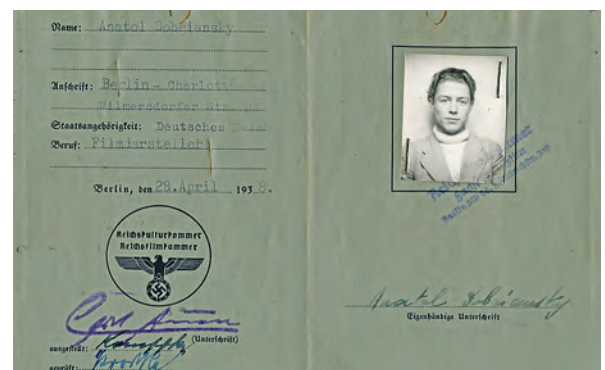 Name: Anatol Dobriansky
Anschrift: Berlin - Charlott
Wilmersdorfer Str
Staatsangehörigkeit: Deutsches Reich
Beruf: Filmdarsteller
Berlin, den 28. April 1938.
Reichskulturkammer
Reichsfilmkammer
(Unterschrift)
ausgestellt:
geprüft:
Anatol Dobriansky
Eigenhändige Unterschrift